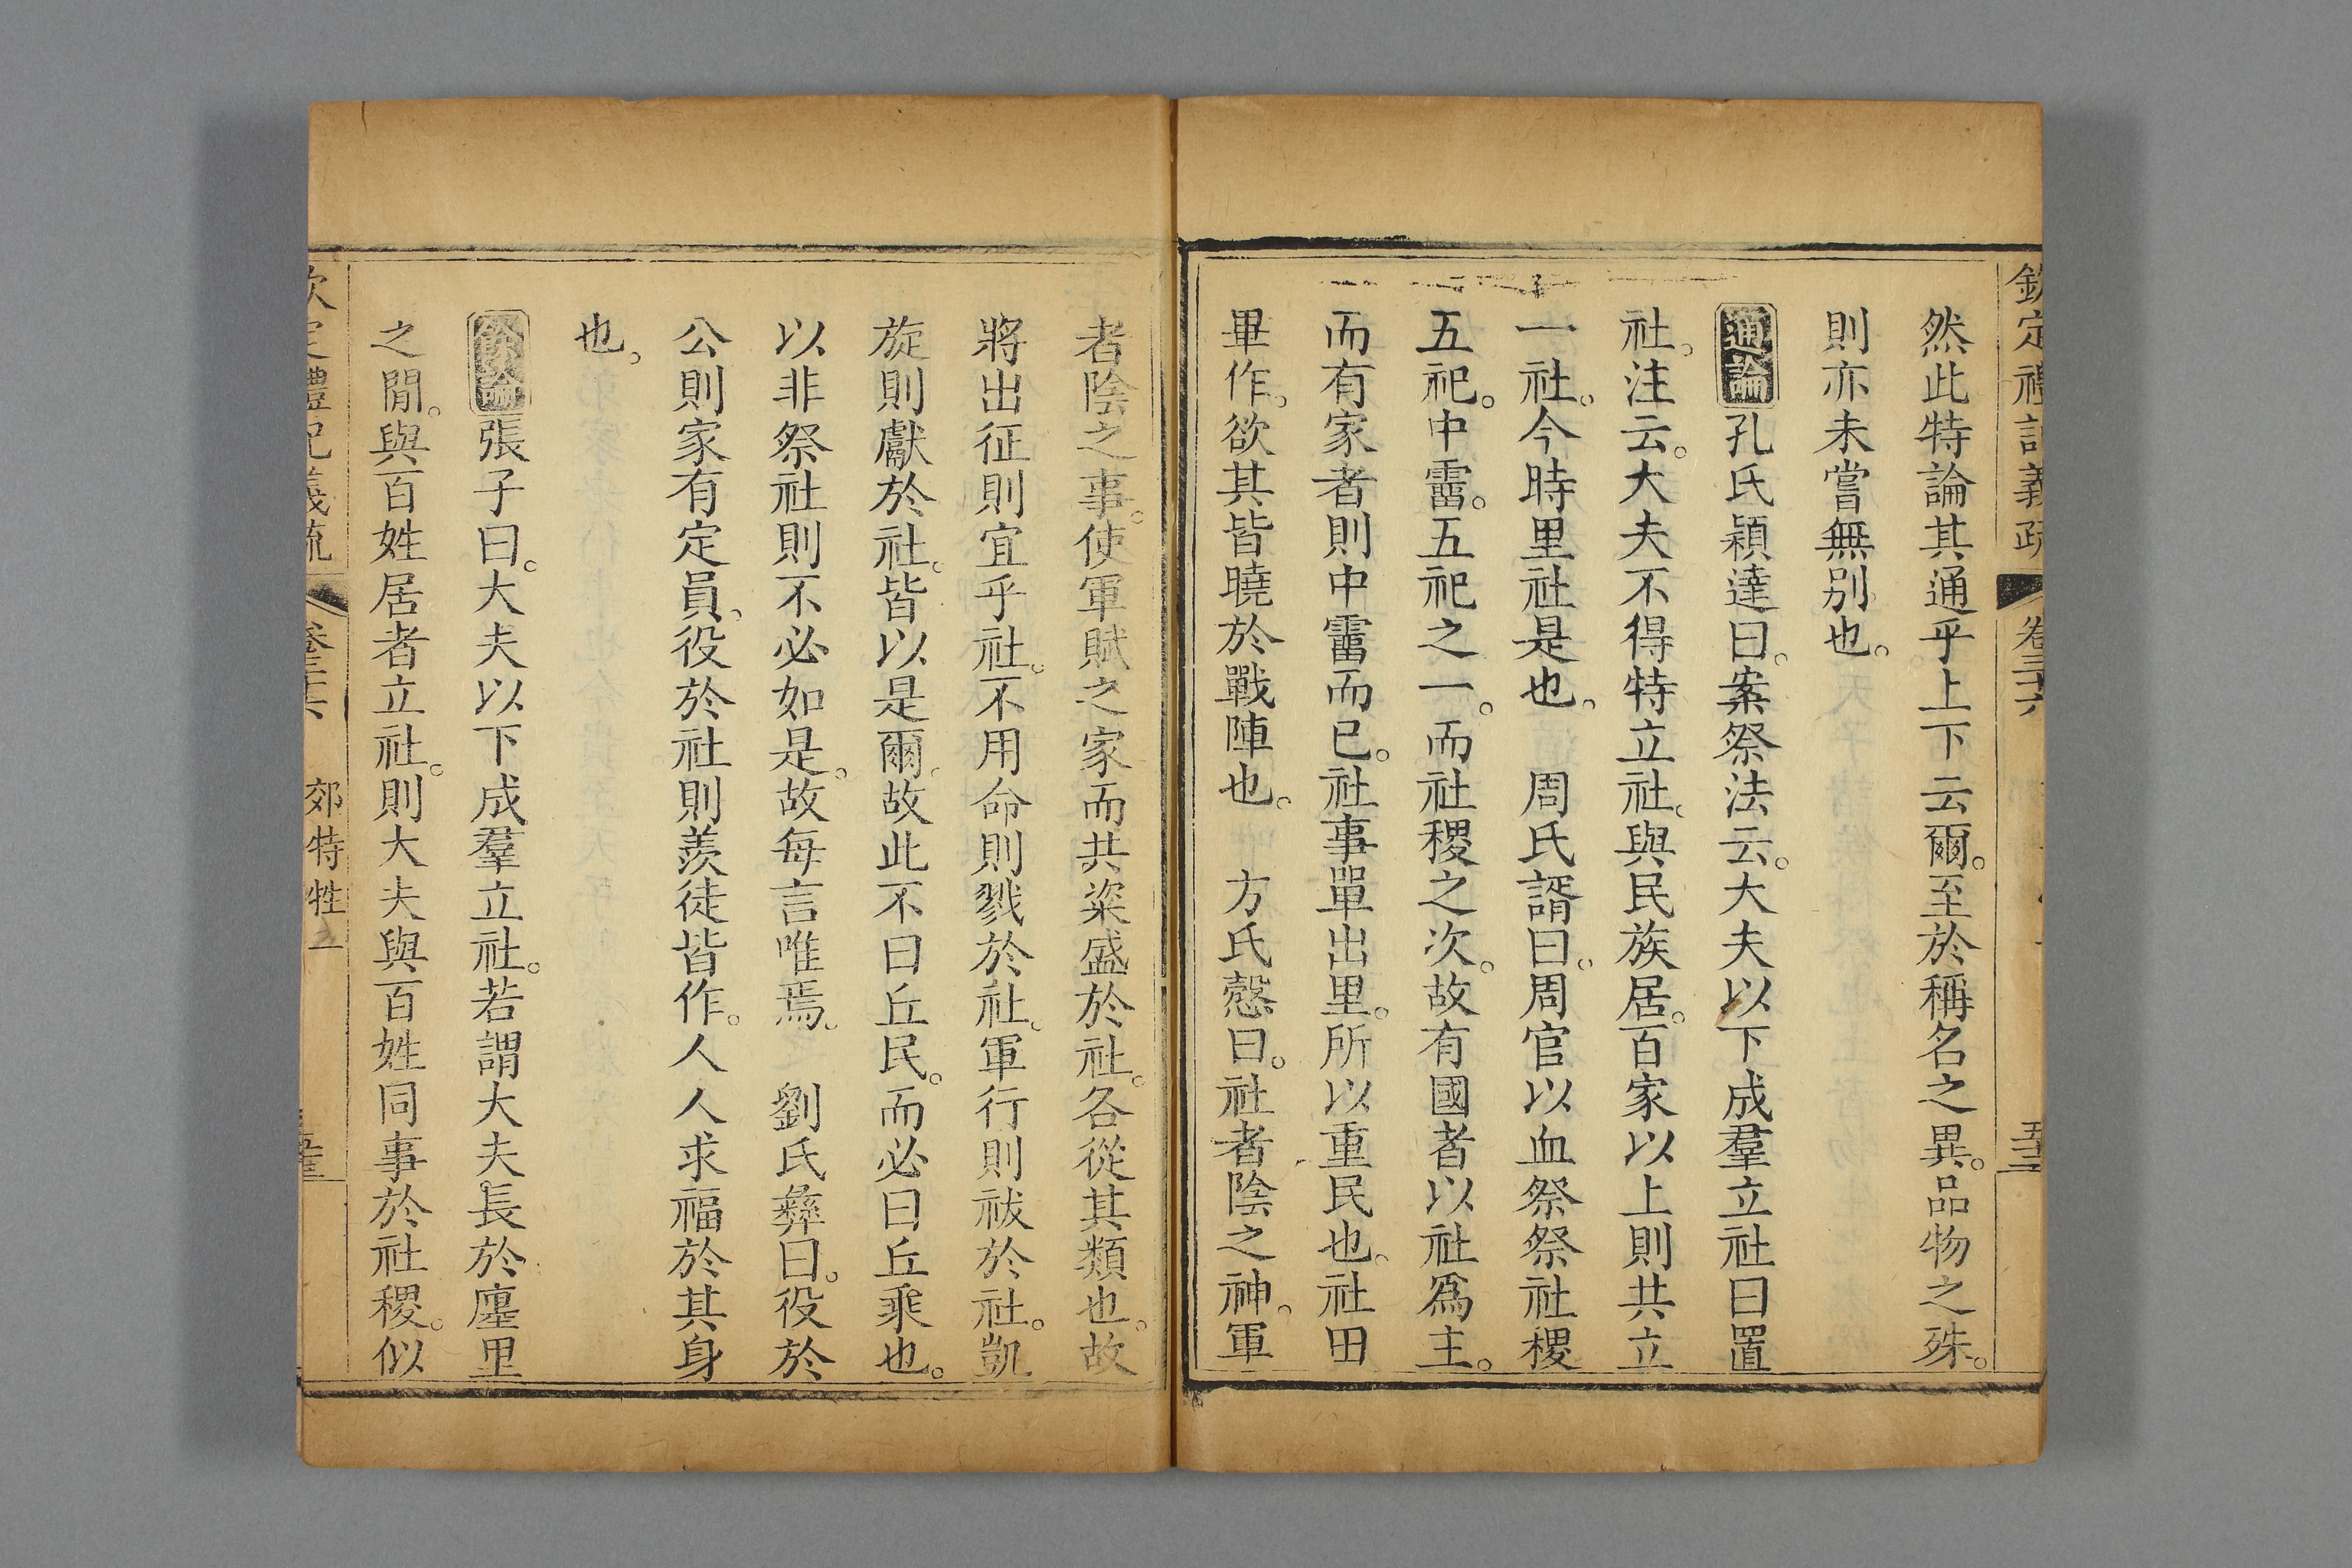 欽定禮記義疏 卷三十六
然此特論其通乎上下云爾。至於稱名之異。品物之殊。
則亦未嘗無別也。
通論孔氏穎達曰。案祭法云。大夫以下成羣立社曰置
社。注云。大夫不得特立社。與民族居。百家以上則共立
一社。今時里社是也。 周氏諝曰。周官以血祭祭社稷
五祀。中霤。五祀之一。而社稷之次。故有國者以社爲主。
而有家者則中霤而已。社事單出里。所以重民也。社田
畢作。欲其皆曉於戰陣也。 方氏慤曰。社者陰之神。軍
者陰之事。使軍賦之家而共粢盛於社。各從其類也。故
將出征則宜乎社。不用命則戮於社。軍行則祓於社。凱
旋則獻於社。皆以是爾。故此不曰丘民。而必曰丘乘也。
以非祭社則不必如是。故每言唯焉。 劉氏彝曰。役於
公則家有定員。役於社則羨徒皆作。人人求福於其身
也。
餘論張子曰。大夫以下成羣立社。若謂大夫長於廛里
之閒。與百姓居者立社。則大夫與百姓同事於社稷。似
欽定禮記義疏 卷三十六 郊特牲